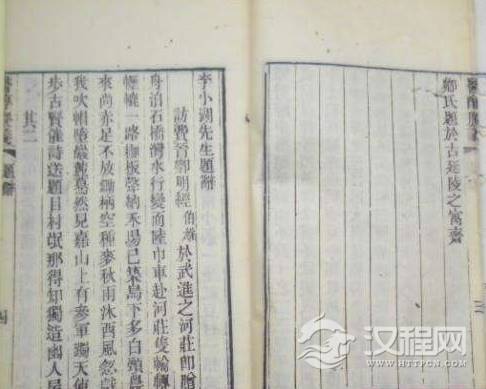 鄭氏題於古延陵之寓齋
李小湖先生題辭
訪費晉卿明經伯雄於武進之河莊即贈
舟泊石橋灣水行變而陸巾車赴河莊隻輪轉
一路 板聲納禾場已築烏下多白頸
來尚赤足不放鋤柄空種麥秋雨沐西風忽
我吹帽 然見嘉山上有 軍躅天使
其二
步古賢催詩送題目村氓那得知獨造幽人屋
题辭
汉程网
HTTPCN.COM